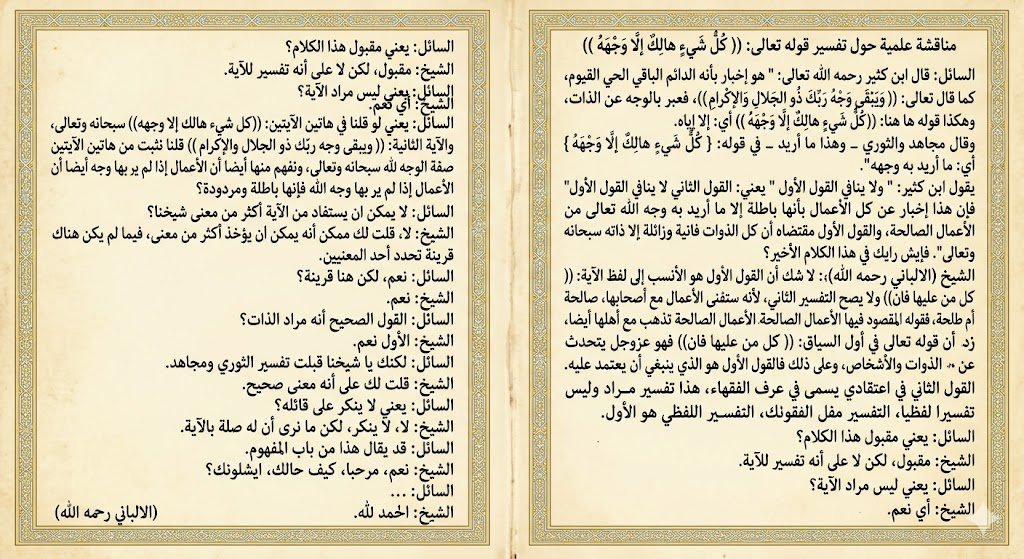 مناقشة علمية حول تفسير قوله تعالى: (( كُلُّ شَيْءٍ هالِكٌ إلَّا وَجْهَهُ ))
السائل: قال ابن كثير رحمه الله تعالى: " هو إخبار بأنه الدائم الباقي الحي القيوم،
كما قال تعالى: (( وَيَبْقَى وَجْهُ رَبِّكَ ذُو الجَلالِ وَالإكْرامِ))، فعبر بالوجه عن الذات،
وهكذا قوله ها هنا: ((كُلُّ شَيْءٍ هالِكٌ إلَّا وَجْهَهُ )) أي: إلا إياه.
وقال مجاهد والثوري ـ وهذا ما أريد ـ في قوله: { كُلُّ شَيْءٍ هالِكٌ إلَّا وَجْهَهُ }
أي: ما أريد به وجهه".
يقول ابن كثير: " ولا ينافي القول الأول " يعني: القول الثاني لا ينافي القول الأول"
فإن هذا إخبار عن كل الأعمال بأنها باطلة إلا ما أريد به وجه الله تعالى من
الأعمال الصالحة، والقول الأول مقتضاه أن كل الذوات فانية وزائلة إلا ذاته سبحانه
وتعالى". فإيش رايك في هذا الكلام الأخير؟
الشيخ (الالباني رحمه الله):: لا شك أن القول الأول هو الأنسب إلى لفظ الآية: ((
كل من عليها فان)) ولا يصح التفسير الثاني، لأنه ستفنى الأعمال مع أصحابها، صالحة
أم طلحة، فقوله المقصود فيها الأعمال الصالحة الأعمال الصالحة تذهب مع أهلها أيضا،
زد أن قوله تعالى في أول السياق: (( كل من عليها فان)) فهو عزوجل يتحدث
عن الذوات والأشخاص، وعلى ذلك فالقول الأول هو الذي ينبغي أن يعتمد عليه.
القول الثاني في اعتقادي يسمى في عرف الفقهاء، هذا تفسير مـراد وليس
تفسيرا لفظيا، التفسير مفل الفقونك، التفسـير اللفظي هو الأول.
السائل: يعني مقبول هذا الكلام؟
الشيخ: مقبول، لكن لا على أنه تفسير للآية.
السائل: يعني ليس مراد الآية؟
الشيخ: أي نعم.
السائل: يعني مقبول هذا الكلام؟
الشيخ: مقبول، لكن لا على أنه تفسير للآية.
السائل: يعني ليس مراد الآية؟
الشيخ: أي نعم.
السائل: يعني لو قلنا في هاتين الآيتين: ((كل شيء هالك إلا وجهه)) سبحانه وتعالى،
والآية الثانية: (( ويبقى وجه ربّك ذو الجلال والإكرام )) قلنا نثبت من هاتين الآيتين
صفة الوجه لله سبحانه وتعالى، ونفهم منها أيضا أن الأعمال إذا لم ير بها وجه أيضا أن
الأعمال إذا لم ير بها وجه الله فإنها باطلة ومردودة؟
السائل: لا يمكن ان يستفاد من الآية أكثر من معنى شيخنا؟
الشيخ: لا، قلت لك ممكن أنه يمكن ان يؤخذ أكثر من معنى، فيما لم يكن هناك
قرينة تحدد أحد المعنيين.
السائل: نعم، لكن هنا قرينة؟
الشيخ: نعم.
السائل: القول الصحيح أنه مراد الذات؟
الشيخ: الأول نعم.
السائل: لكنك يا شيخنا قبلت تفسير الثوري ومجاهد.
الشيخ: قلت لك على أنه معنى صحيح.
السائل: يعني لا ينكر على قائله؟
الشيخ: لا، لا ينكر، لكن ما نرى أن له صلة بالآية.
السائل: قد يقال هذا من باب المفهوم.
الشيخ: نعم، مرحبا، كيف حالك، ايشلونك؟
السائل: ...
الشيخ: الحمد لله. (الالباني رحمه الله)